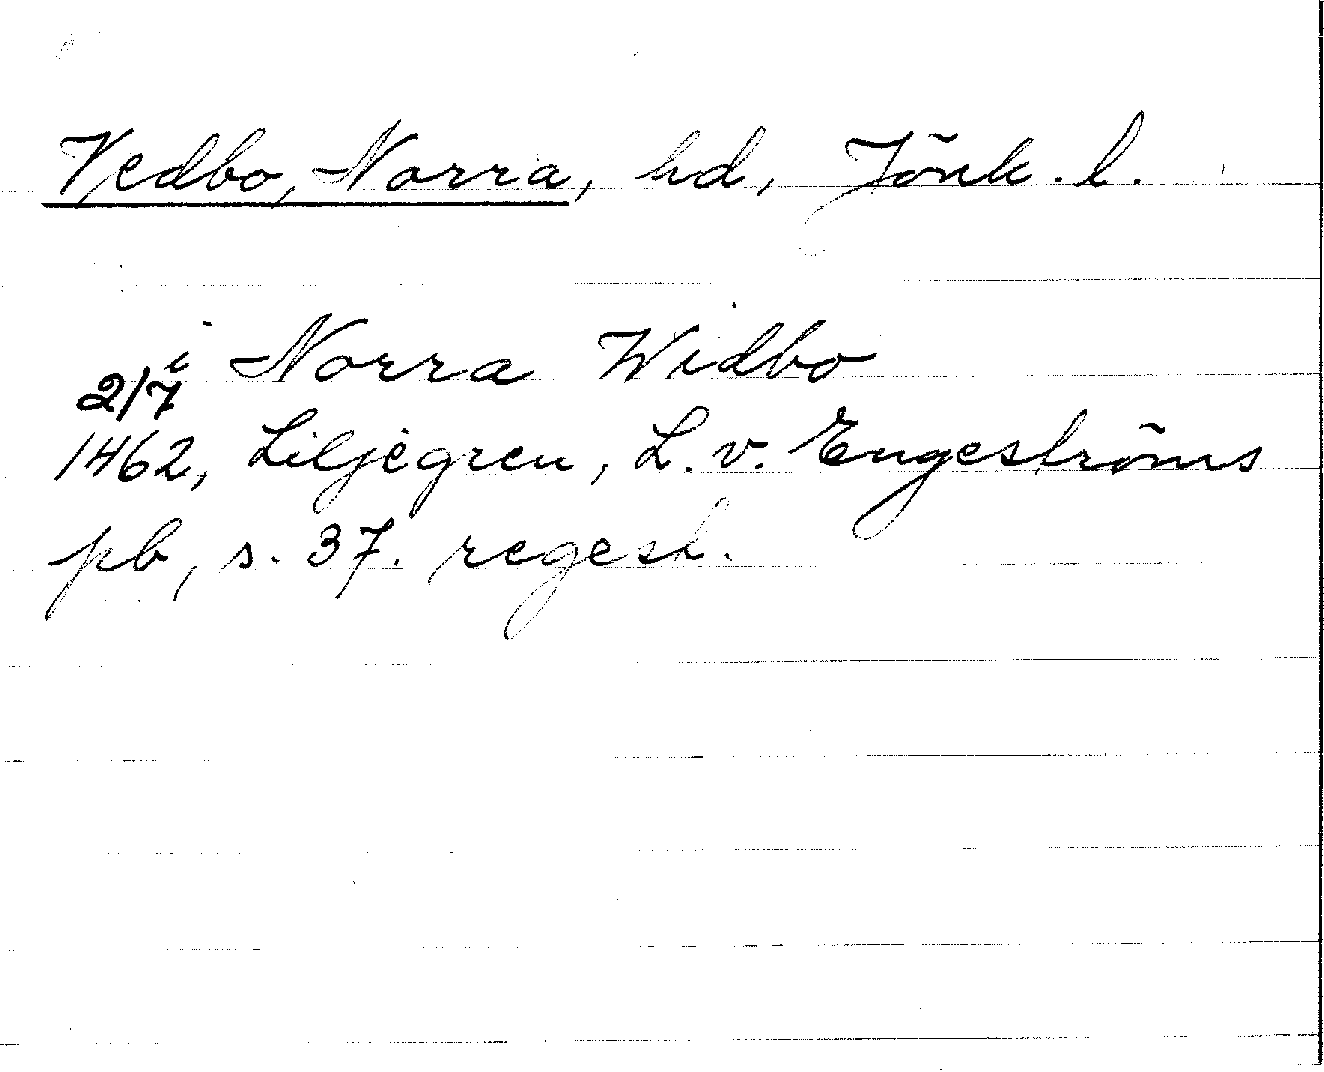 Vedbo, Norra, hd, Jönk. l.
i Norra Widbo
2/7
1462, Liljegren, L. v. Engeströms
pb, s. 37. regest.